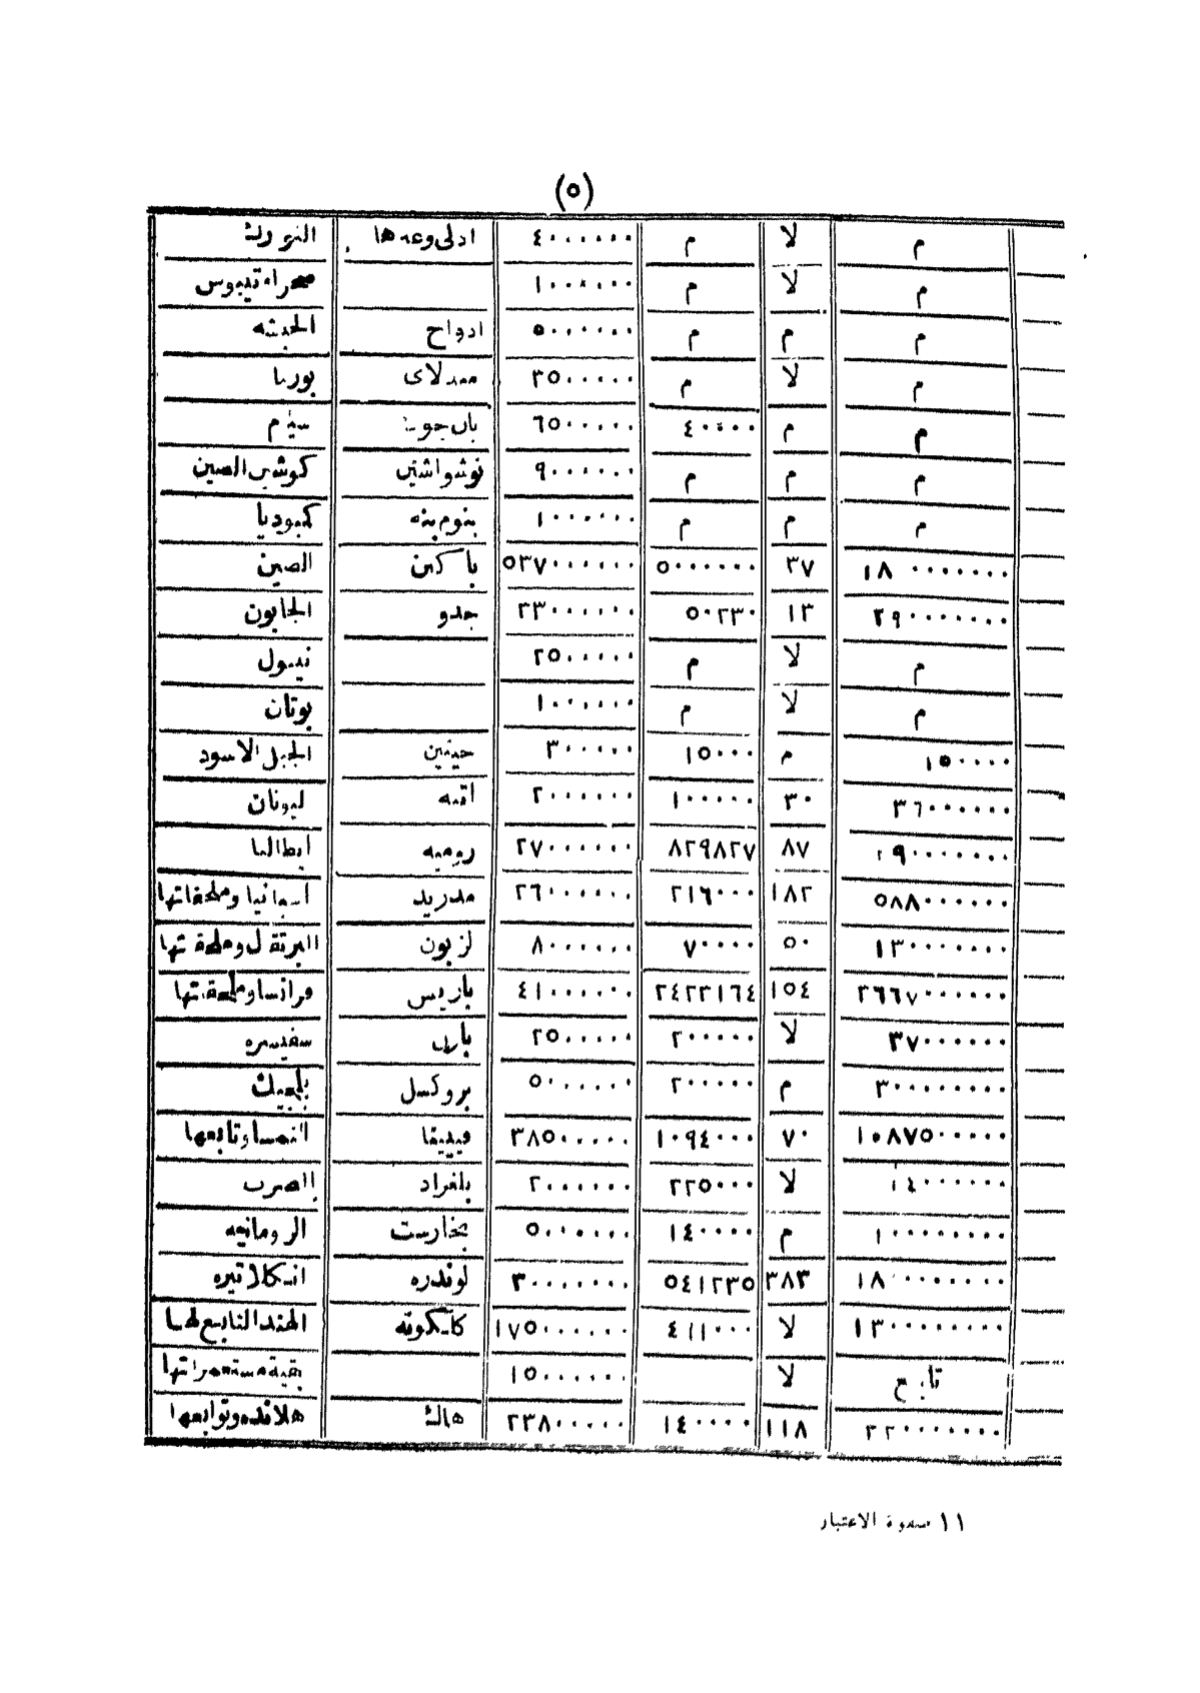 (٥)
ادلى وعدها ٤٠٠٠٠٠٠ م لا م
صحراء تيبوس ١٠٠٠٠٠٠ م لا م
الحبشه ادواح ٥٠٠٠٠٠٠ م م م
بورما مندلاى ٣٥٠٠٠٠٠ م لا م
سيام ٦٥٠٠٠٠٠ ٤٠٠٠٠٠ م م
كوشين الصين ٩٠٠٠٠٠٠ م م م
كمبوديا بنوم بنه ١٠٠٠٠٠٠ م م م
الصين باكين ٥٣٧٠٠٠٠٠٠ ٥٠٠٠٠٠٠ ٣٧ ١٨٠٠٠٠٠٠٠
الجابون جدو ٢٣٠٠٠٠٠٠ ٥٠٢٣٠ ١٣ ٢٩٠٠٠٠٠٠٠
نيبول ٢٥٠٠٠٠٠ م لا م
بوتان ١٠٠٠٠٠٠ م لا م
الجبل الاسود ٣٠٠٠٠٠ ١٥٠٠٠ م ١٥٠٠٠٠
ليونان اتينه ٢٠٠٠٠٠٠ ١٠٠٠٠٠ ٣٠ ٣٦٠٠٠٠٠٠
ايطاليا روميه ٢٧٠٠٠٠٠٠ ٨٢٩٨٢٧ ٨٧
اسبانيا وملحقاتها مدريد ٢٦٠٠٠٠٠٠ ٢١٦٠٠٠ ١٨٢ ٥٨٨٠٠٠٠٠٠
البرتقال وملحقاتها لزبون ٨٠٠٠٠٠٠ ٧٠٠٠٠ ٥٠ ١٣٠٠٠٠٠٠٠
فرانسا وملحقاتها باريس ٤١٠٠٠٠٠٠ ٢٤٢٣١٦٤ ١٥٤ ٢٦٦٧٠٠٠٠٠٠
سفيسره بارن ٢٥٠٠٠٠٠ ٢٠٠٠٠٠ لا ٣٧٠٠٠٠٠٠
بلجيك بروكسل ٥٠٠٠٠٠٠ ٢٠٠٠٠٠ م ٣٠٠٠٠٠٠٠٠
النمسا وتابعها فيينا ٣٨٥٠٠٠٠٠ ١٠٩٤٠٠٠ ٧٠ ١٠٨٧٥٠٠٠٠٠
الصرب بلغراد ٢٠٠٠٠٠٠ ٢٢٥٠٠٠ لا ١٤٠٠٠٠٠٠
الرومانيه بخارست ٥٠٠٠٠٠٠ ١٤٠٠٠٠ م ١٠٠٠٠٠٠٠٠
انكلاتيره لوندره ٣٠٠٠٠٠٠٠ ٥٤١٢٣٥ ٣٨٣ ١٨٠٠٠٠٠٠٠٠
الهند التابع لها كالكوته ١٧٥٠٠٠٠٠٠ ٤١١٠٠٠ لا ١٣٠٠٠٠٠٠٠٠
بقية مستعمراتها ١٥٠٠٠٠٠٠ لا تابع
هلانده وتوابعها هاك ٢٣٨٠٠٠٠٠ ١٤٠٠٠٠ ١١٨ ٢٢٠٠٠٠٠٠٠
١١ صفوة الاعتبار